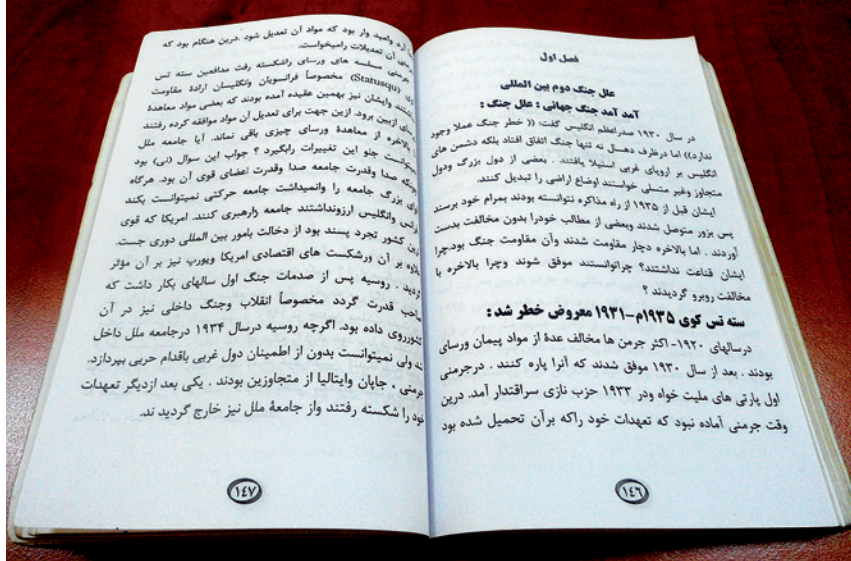 فصل اول
علل جنگ دوم بین المللی
آمد آمد جنگ جهانی : علل جنگ :
در سال ۱۹۳۰ صدراعظم انگلیس گفت: (( خطر جنگ عملا وجود
ندارد)) اما درظرف دهسال نه تنها جنگ اتفاق افتاد بلکه دشمن های
انگلیس بر اروپای غربی استیلا یافتند . بعضی از دول بزرگ ودول
متجاوز وغیر متسلی خواستند اوضاع اراضی را تبدیل کنند.
ایشان قبل از ۱۹۳۵ از راه مذاکره نتوانسته بودند بمرام خود برسند
پس بزور متوصل شدند وبعضی از مطالب خودرا بدون مخالفت بدست
آوردند . اما بالاخره دچار مقاومت شدند وآن مقاومت جنگ بود.چرا
ایشان قناعت نداشتند؟ چراتوانستند موفق شوند وچرا بالاخره با
مخالفت روبرو گردیدند ؟
سته تس کوی ۱۹۳۵م-۱۹۳۱ معروض خطر شد :
درسالهای ۱۹۲۰- اکثر جرمن ها مخالف عدۀ از مواد پیمان ورسای
بودند . بعد از سال ۱۹۳۰ موفق شدند که آنرا پاره کنند . درجرمنی
اول پارتی های ملیت خواه ودر ۱۹۳۳ حزب نازی سراقتدار آمد. درین
وقت جرمنی آماده نبود که تعهدات خود راکه برآن تحمیل شده بود
۱٤٦
آرد وامید وار بود که مواد آن تعدیل شود .درین هنگام بود که
آن تعدیلات رامیخواست.
جرمنی مسلسه های ورسای راشکسته رفت مدافعین سته تس
(Statusqu) مخصوصاً فرانسویان وانگلیسان ارادۀ مقاومت
وایشان نیز بهمین عقیده آمده بودند که بعضی مواد معاهدۀ
ازبین برود. ازین جهت برای تعدیل آن مواد موافقه کرده رفتند
بالاخره از معاهدۀ ورسای چیزی باقی نماند. آیا جامعه ملل
میتوانست جلو این تغییرات رابگیرد ؟ جواب این سوال (نی) بود
صدا وقدرت جامعه صدا وقدرت اعضای قوی آن بود. هرگاه
بزرگ جامعه را وانمیداشت جامعه حرکتی نمیتوانست بکند
وانگلیس ارزونداشتند جامعه رارهبری کنند. امریکا که قوی
ترین کشور تجرد پسند بود از دخالت بامور بین المللی دوری جست.
بر آن ورشکست های اقتصادی امریکا ویورپ نیز بر آن مؤثر
گردید . روسیه پس از صدمات جنگ اول سالهای بکار داشت که
صاحب قدرت گردد مخصوصاً انقلاب وجنگ داخلی نیز در آن
کشورروی داده بود. اگرچه روسیه درسال ۱۹۳۴ درجامعه ملل داخل
شد ولی نمیتوانست بدون از اطمینان دول غربی باقدام حربی بپردازد.
جرمنی ، جاپان وایتالیا از متجاوزین بودند . یکی بعد ازدیگر تعهدات
خود را شکسته رفتند واز جامعۀ ملل نیز خارج گردید ند.
۱٤۷